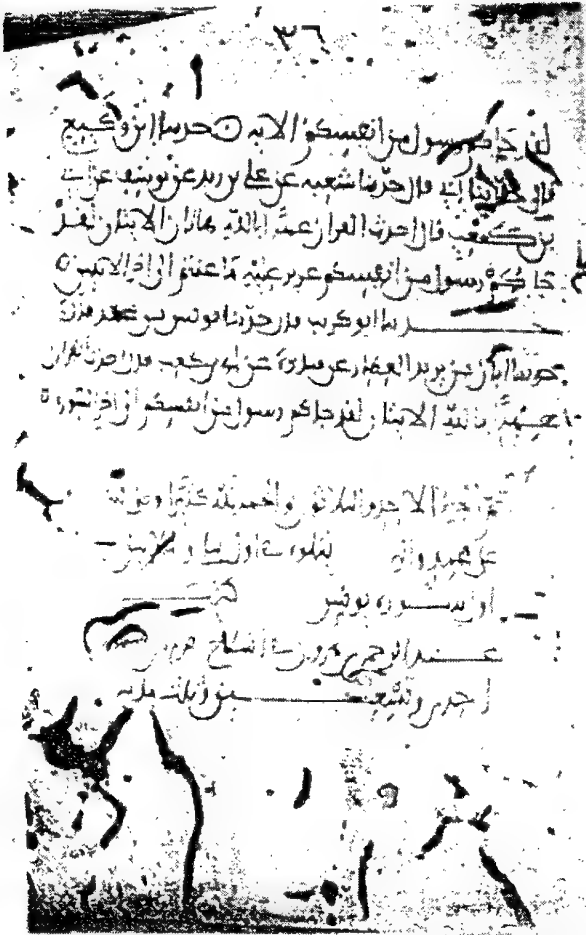 ٣٦
لقد جاكم رسول من انفسكم الايه ○ حدثنا ابن وكيع
قال حدثنا ابي قال حدثنا شعبه عن علي بن زيد عن يوسف عن ابي
بن كعب قال احدث القران عهدا بالله هاتان الايتان لقد
جاكم رسول من انفسكم عزيز عليه ما عنتم الى اخر الايتين ○
حدثنا ابو كريب قال حدثنا يونس بن محمد قال
حدثنا ابان بن يزيد العطار عن قتادة عن ابي بن كعب قال احدث القران
عهدا بالله الايتان لقد جاكم رسول من انفسكم الى اخر السورة
الجز الاحد والثلاثون والحمد لله كثيرا
على محمد واله يتلوه
اول سورة يونس
عبد الرحمن
احدى وتسعين وثلث مايه